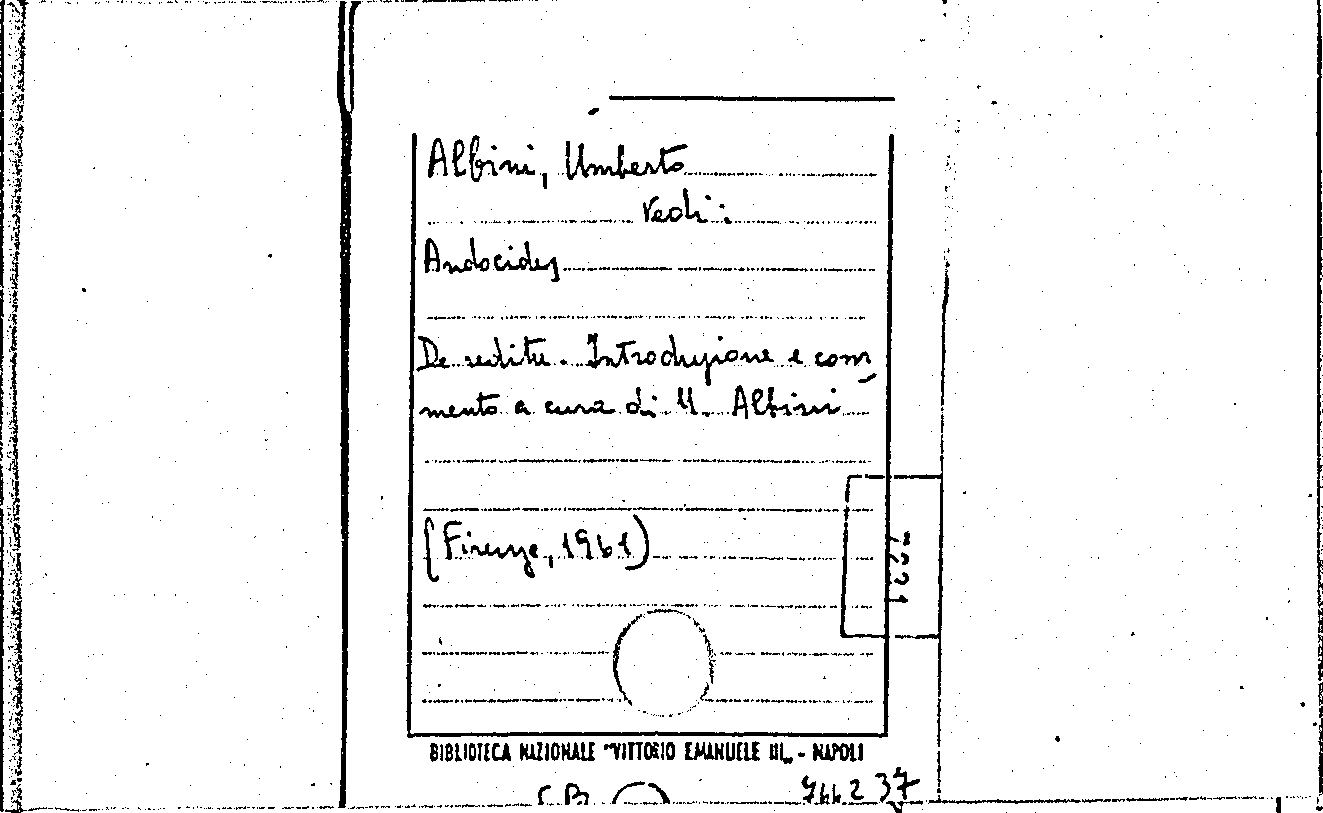 Albini, Umberto
Vedi:
Andocides
De reditu. Introduzione e com
mento a cura di U. Albini
(Firenze, 1961)
7231
BIBLIOTECA NAZIONALE "VITTORIO EMANUELE III„ - NAPOLI
766237